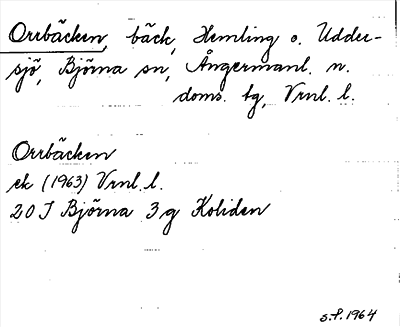 Orrbäcken, bäck, Hemling o. Udder-
sjö, Björna sn, Ångermanl. n.
doms. tg, Vrnl. l.
Orrbäcken
ek (1963) Vrnl. l.
20 J Björna 3 g Koliden
S.P. 1964